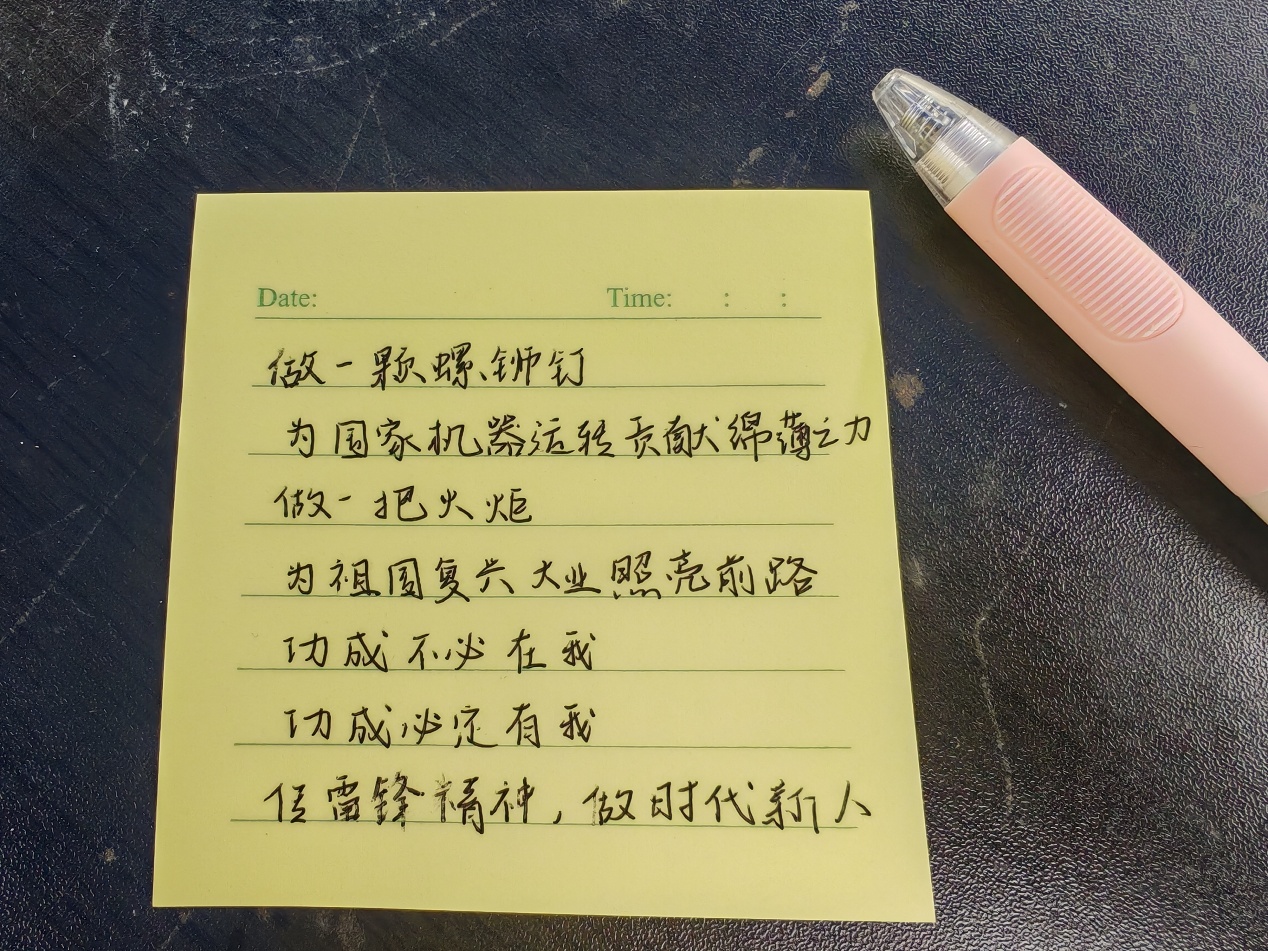 Date: Time: : :
做一颗螺铆钉
为国家机器运转贡献绵薄之力
做一把火炬
为祖国复兴大业照亮前路
功成不必在我
功成必定有我
信雷锋精神，做时代新人